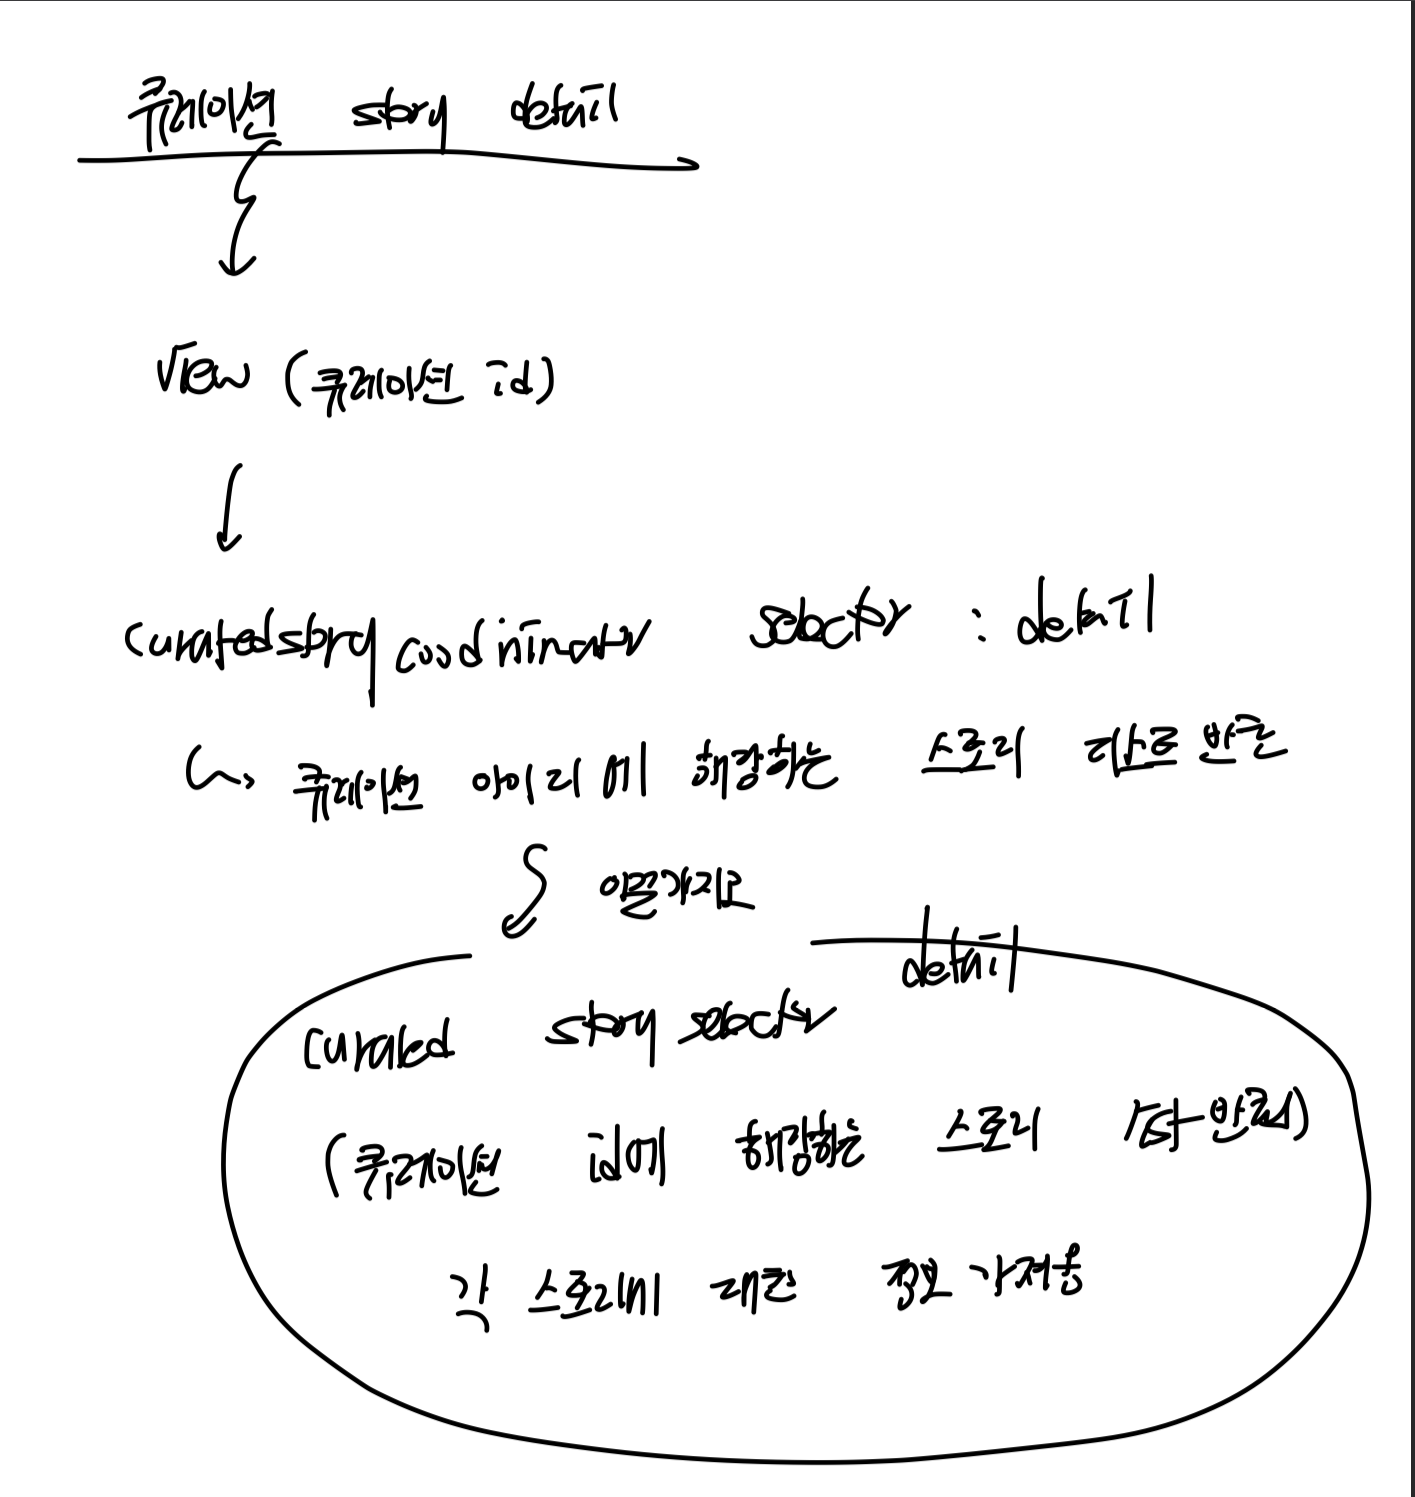 큐레이션 story detail
View (큐레이션 id)
curatedstory coodninator selector : detail
큐레이션 아이리에 해당하는 스토리 리스트 반환
이걸가지고
detail
curated story selector
(큐레이션 id에 해당하는 스토리 반환)
각 스토리에 대한 정보 가져옴